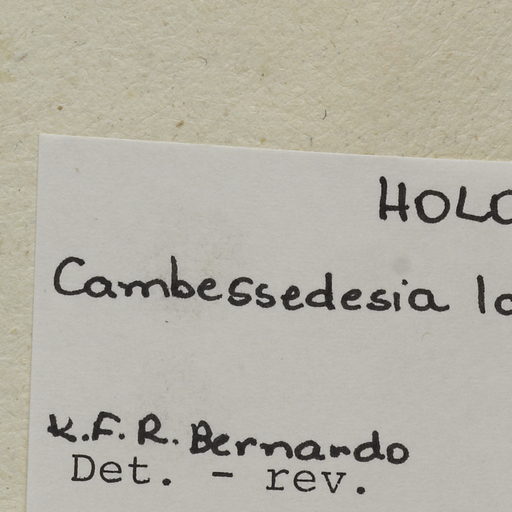 HOLO
Cambessedesia la
K.F.R. Bernardo
Det. - rev.